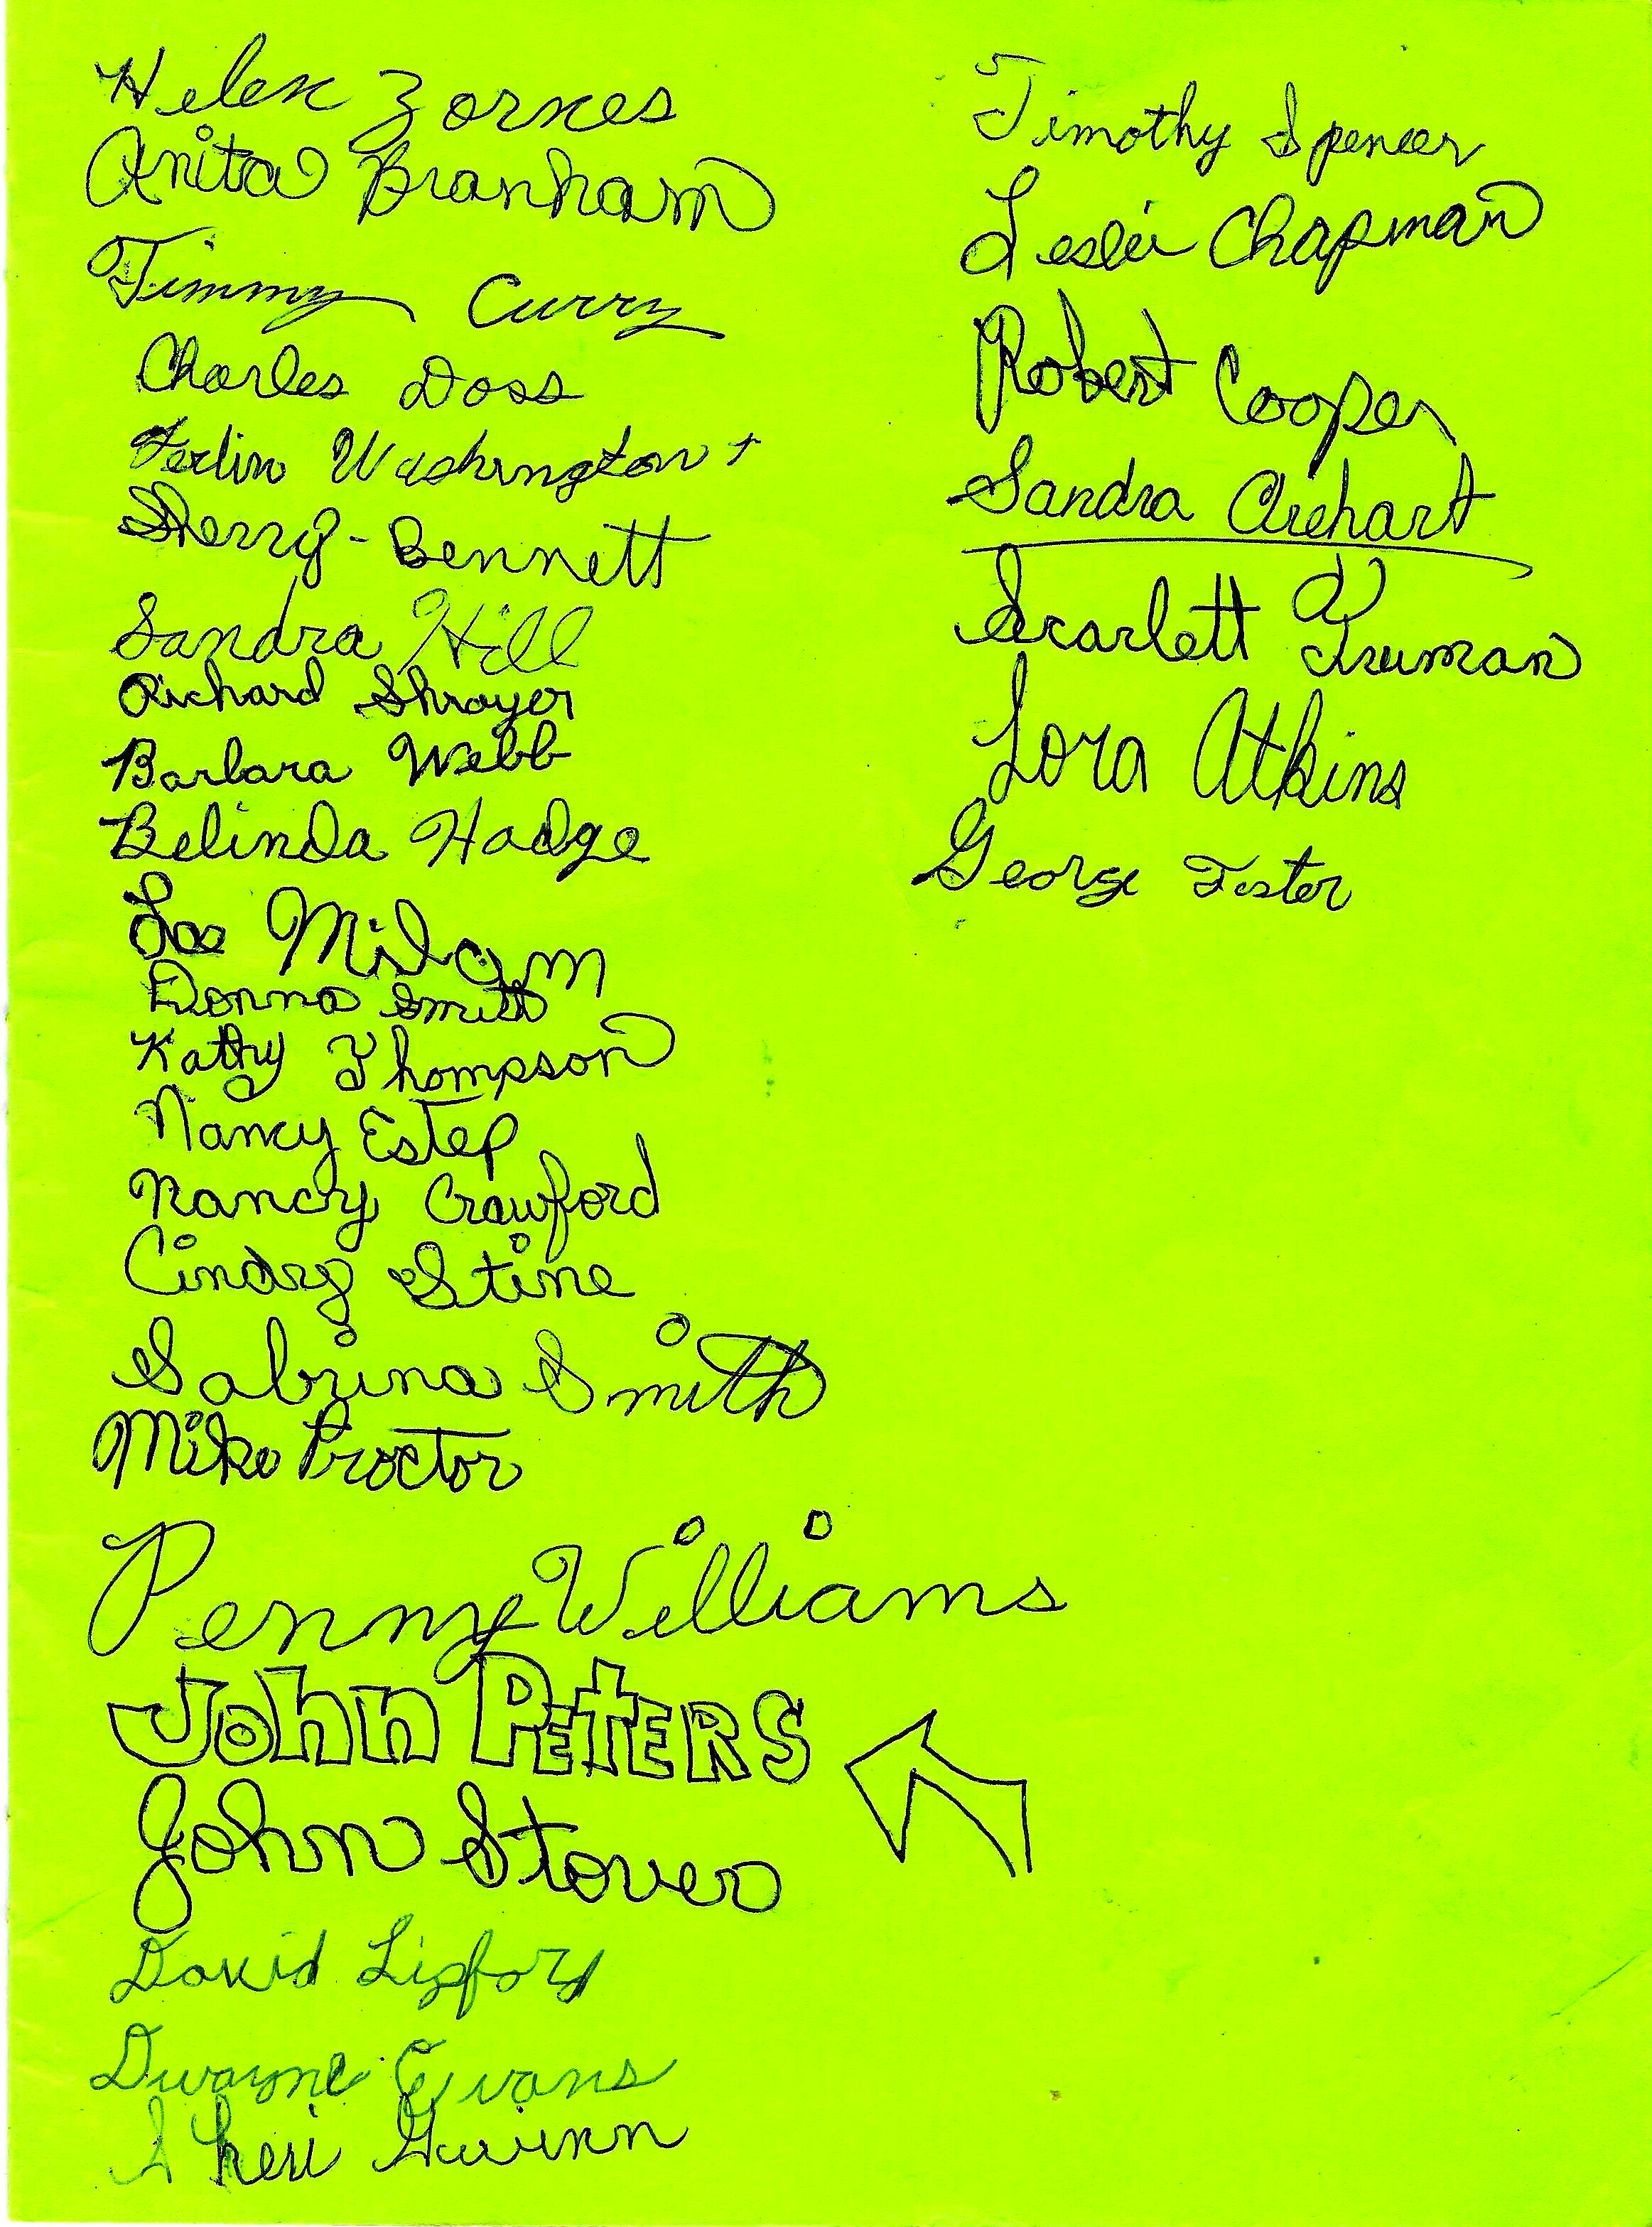 Helen Zornes
Anita Branham
Timmy Curry
Charles Doss
Ferlin Washington +
Sherry - Bennett
Sandra Hill
Richard Shroyer
Barbara Webb
Belinda Hadge
Lee Milam
Donna Smith
Kathy Thompson
Nancy Estep
Nancy Crawford
Cindy Stine
Sabrina Smith
Mike Proctor
Penny Williams
John PETERS
John Stover
David
Dwayne Evans
Sheri Gwinn
Timothy Spencer
Leslie Chapman
Robert Cooper
Sandra Arehart
Scarlett Truman
Lora Atkins
George Tester